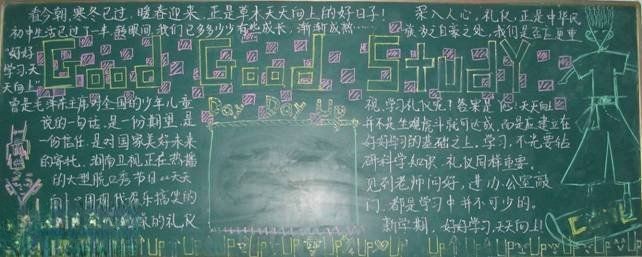 看今朝,寒冬已过,暖春迎来,正是草木天天向上的好日子!
初中生活已过了一半,转眼间,我们已多多少少有些成长,渐渐成熟……
深入人心,礼仪,正是中华民
族为之自豪之处,我们是否上更重
Good Good Study
“好好
学习,天
天向上”
Day Day Up
曾是毛泽东主席对全国的少年儿童
说的一句话,是一份期望,是
一份信任,是对国家美好未来
的寄托,湖南卫视正在热播
的大型脱口秀节目《天天
向上》用现代娱乐搞笑的
的礼仪
视,学习礼仪呢!答案是 天天向上
并不是坐观虎斗就可达成,而是应建立在
好好学习的基础之上,学习,不光要钻
研科学知识,礼仪同样重要,
见到老师问好,进办公室敲
门,都是学习中并不可少的。
新学期,好好学习,天天向上!
UP UP UP UP UP UP UP